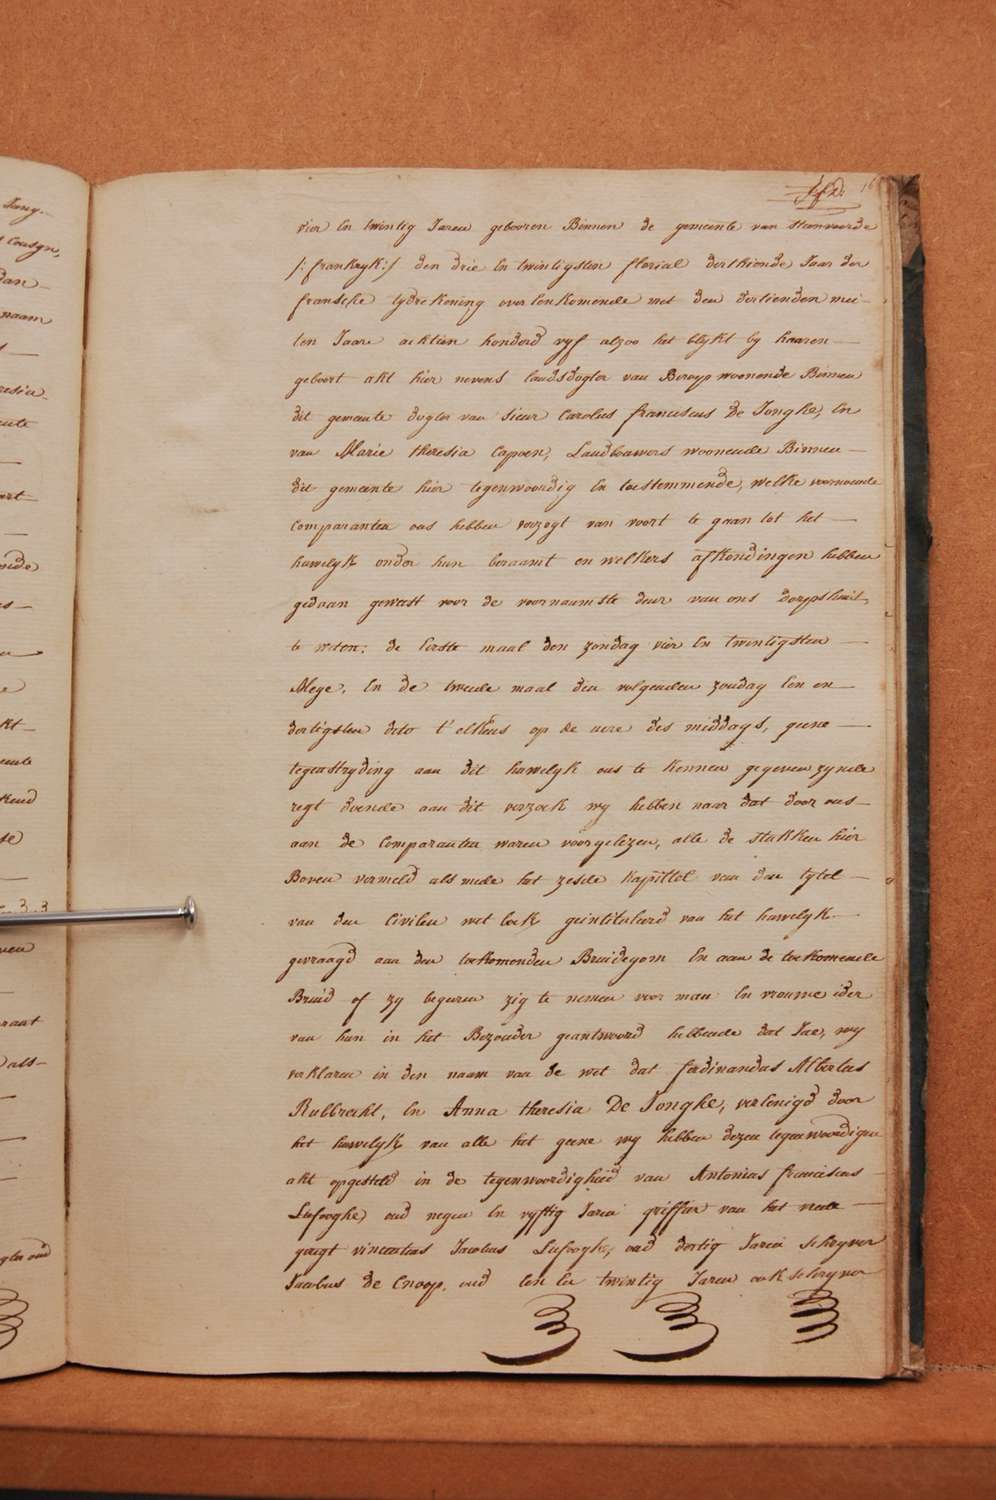 16
vier En twintig Jaren gebooren Binnen de gemeente van steenvoorde
/: frankryk:/ den drie En twintigsten florial derthiende Jaar der
fransche tydrekening over Eenkomende met den dertienden mei
Een Jaare achtien honderd vyf alzoo het blykt by haaren
geboort akt hier nevens landsdogter van Beroep woonende Binnen
dit gemeente dogter van sieur Carolus franciscus De Jonghe, En
van Marie theresia Capoen, Landbouwers woonende Binnen
dit gemeente hier tegenwoordig En toestemmende, welke voornoemde
Comparanten ons hebben verzogt van voort te gaan tot het
huwelyk onder hun beraamt en welkers afkondingen hebben
gedaan geweest voor de voornaamste deur van ons dorpshuis,
te weten: de Eerste maal den zondag vier En twintigsten
Mege, En de tweede maal den volgenden zondag Een en
dertigsten dito t'elkens op de uere des middags, geene
tegenstryding aan dit huwelyk ons te kennen gegeven zynde
regt doende aan dit verzoek wy hebben naar dat door ons
aan de Comparanten waren voorgelezen, alle de stukken hier
Boven vermeld als mede het zesde kapittel van den tytel
van den Civilen wet boek geintituleerd van het huwelyk
gevraagd aan den toekomenden Bruidegom En aan de toekomende
Bruid of zy begeren zig te nemen voor man En vrouwe ider
van hun in het Bezonder geantwoord hebbende dat Jae, wy
verklaren in den naam van de wet dat ferdinandus Albertus
Rubbrecht, En Anna theresia De Jonghe, verEenigd door
het huwelyk van alle het geene wy hebben dezen tegenwoordigen
akt opgesteld in de tegenwoordigheid van Antonius franciscus
Lefooghe, oud negen En vyftig Jaren griffier van het vrede
geregt vincentius Jacobus Lefooghe, oud dertig Jaren schryver
Jacobus de Cnoop, oud Een En twintig Jaren ook schryver